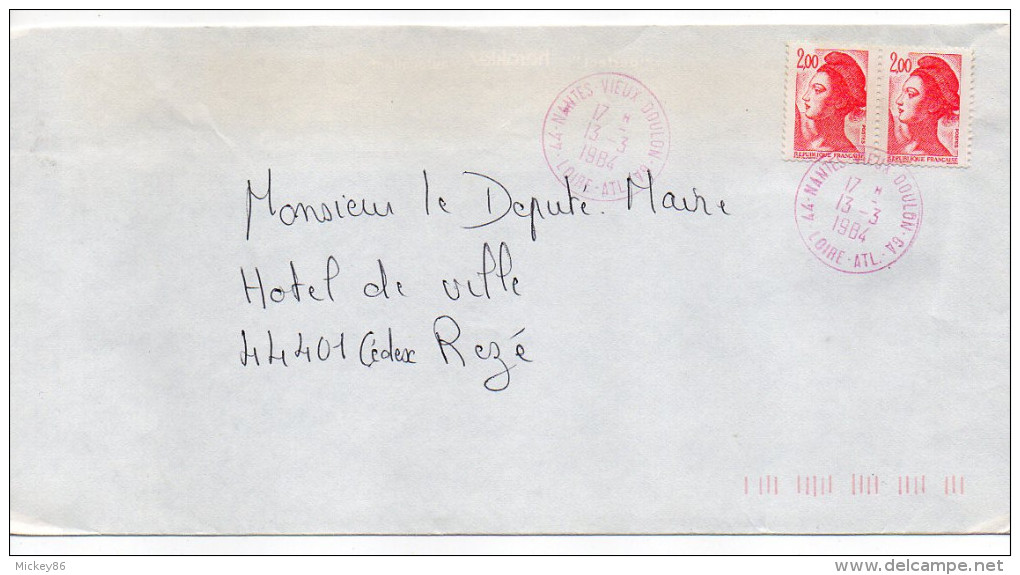 2,00 2,00
POSTES POSTES
REPUBLIQUE FRANÇAISE REPUBLIQUE FRANÇAISE
44-NANTES VIEUX DOULON-GA
17 H
13-3
1984
LOIRE-ATL.
44-NANTES VIEUX DOULON-GA
17 H
13-3
1984
LOIRE-ATL.
Monsieur le Depute. Maire
Hotel de ville
44401 Cédex Rezé
Mickey86
delcampe.net